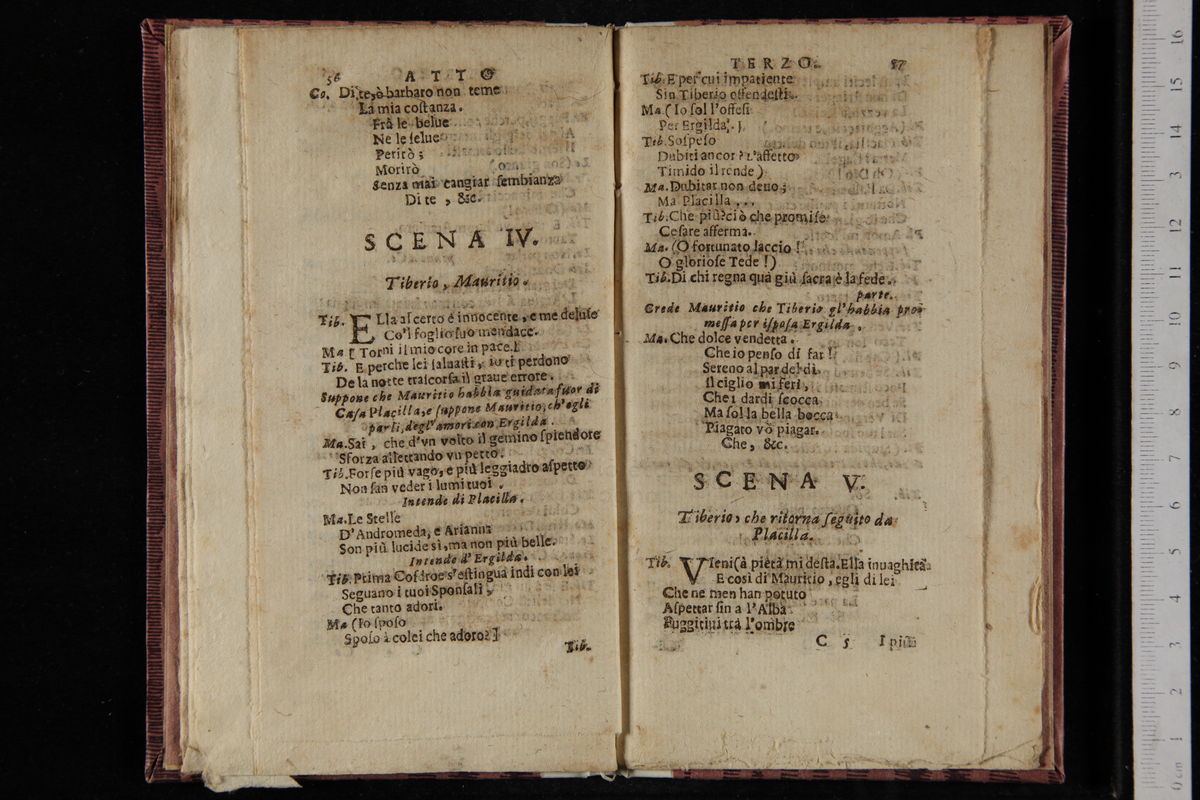 56 ATTO
Co. Di te, ò barbaro non teme
La mia coſtanza.
Frà le belue
Ne le ſelue
Perirò;
Morirò
Senza mai cangiar ſembianza
Di te, &c.
SCENA IV.
Tiberio, Mauritio.
Tib. ELla al certo é innocente, e me deluſe
Co'l foglio ſuo mendace.
Ma [ Torni il mio core in pace.]
Tib. E perche lei ſaluaſti, io ti perdono
De la notte traſcorſa il graue errore.
Suppone che Mauritio habbia guidata fuor di
Caſa Placilla, e ſuppone Mauritio, ch'egli
parli, degl'amori con Ergilda.
Ma. Sai, che d'vn volto il gemino ſplendore
Sforza allettando vn petto.
Tib. Forſe più vago, e più leggiadro aſpetto
Non ſan veder i lumi tuoi.
Intende di Placilla.
Ma. Le Stelle
D'Andromeda, e Arianna
Son più lucide sì, ma non più belle.
Intende d'Ergilda.
Tib. Prima Coſdroe s'eſtingua indi con lei
Seguano i tuoi Sponſali,
Che tanto adori.
Ma (Io ſpoſo
Spoſo à colei che adoro?]
Tib.
TERZO. 57
Tib. E per cui impatiente
Sin Tiberio offendeſti.
Ma. (Io ſol l'offeſi
Per Ergilda.)
Tib. Soſpeſo
Dubiti ancor? (L'affetto
Timido il rende)
Ma. Dubitar non deuo;
Ma Placilla ...
Tib. Che più? ciò che promiſe
Ceſare afferma.
Ma. (O fortunato laccio!
O glorioſe Tede!)
Tib. Di chi regna quà giù ſacra è la fede.
parte.
Crede Mauritio che Tiberio gl'habbia pro-
meſſa per iſpoſa Ergilda.
Ma. Che dolce vendetta.
Che io penſo di far!
Sereno al par del dì
Il ciglio mi ferì,
Che i dardi ſcocca
Ma ſol la bella bocca
Piagato vò piagar.
Che, &c.
SCENA V.
Tiberio, che ritorna ſeguito da
Placilla.
Tib. VIeni (à pietà mi deſta. Ella inuaghita
E così di Mauritio, egli di lei
Che ne men han potuto
Aſpettar ſin a l'Alba
Fuggitiui trà l'ombre
C 5 I piu